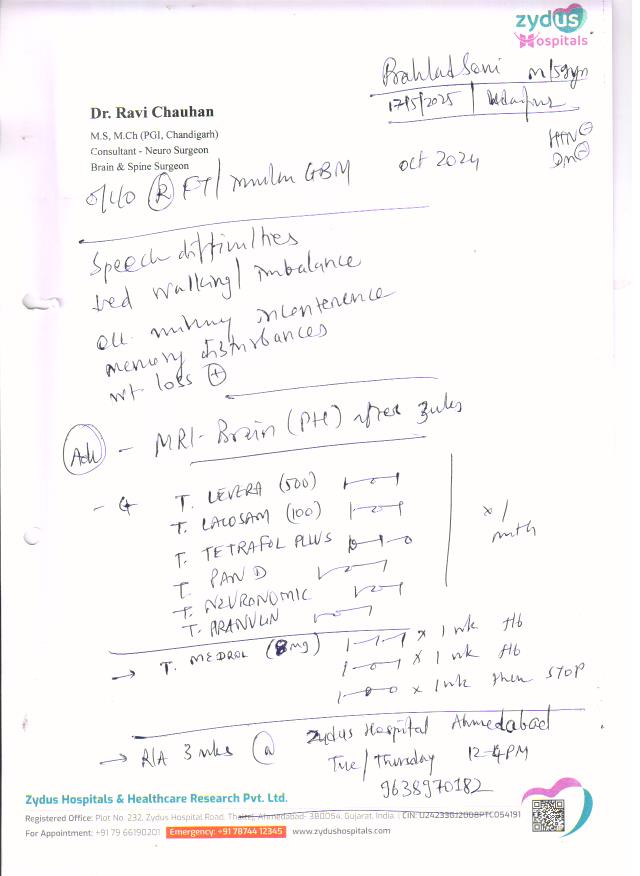 zydus
Hospitals
Prahlad Soni m/59yn
17/5/2025 | Udaipur
Dr. Ravi Chauhan
M.S, M.Ch (PGI, Chandigarh)
Consultant - Neuro Surgeon
Brain & Spine Surgeon
HTN ⊖
DM ⊖
(R) FT / GBM Oct 2024
Speech difficulties
bed walking / imbalance
occ. incontenence
memory disturbances
wt loss ⊕
Adv - MRI-Brain (PH) after 3wks
T. LEVERA (500) 1-0-1
T. LACOSAM (100) 1-0-1
T. TETRAFOL PLUS 0-1-0
T. PAN D 1-0-1
T. NEURONOMIC 1-0-1
T. 1-0-1
x 1 mnth
→ T. MEDROL (8mg) 1-1-1 x 1 wk fb
1-0-1 x 1 wk fb
1-0-0 x 1wk then STOP
→ R/A 3 wks @ Zydus Hospital Ahmedabad
Tue / Thursday 12-4PM
9638970182
Zydus Hospitals & Healthcare Research Pvt. Ltd.
Registered Office: Plot No. 232, Zydus Hospital Road, Thaltej, Ahmedabad- 380054, Gujarat, India. | CIN: U24233GJ2008PTC054191
For Appointment: +91 79 66190201 Emergency: +91 78744 12345 www.zydushospitals.com